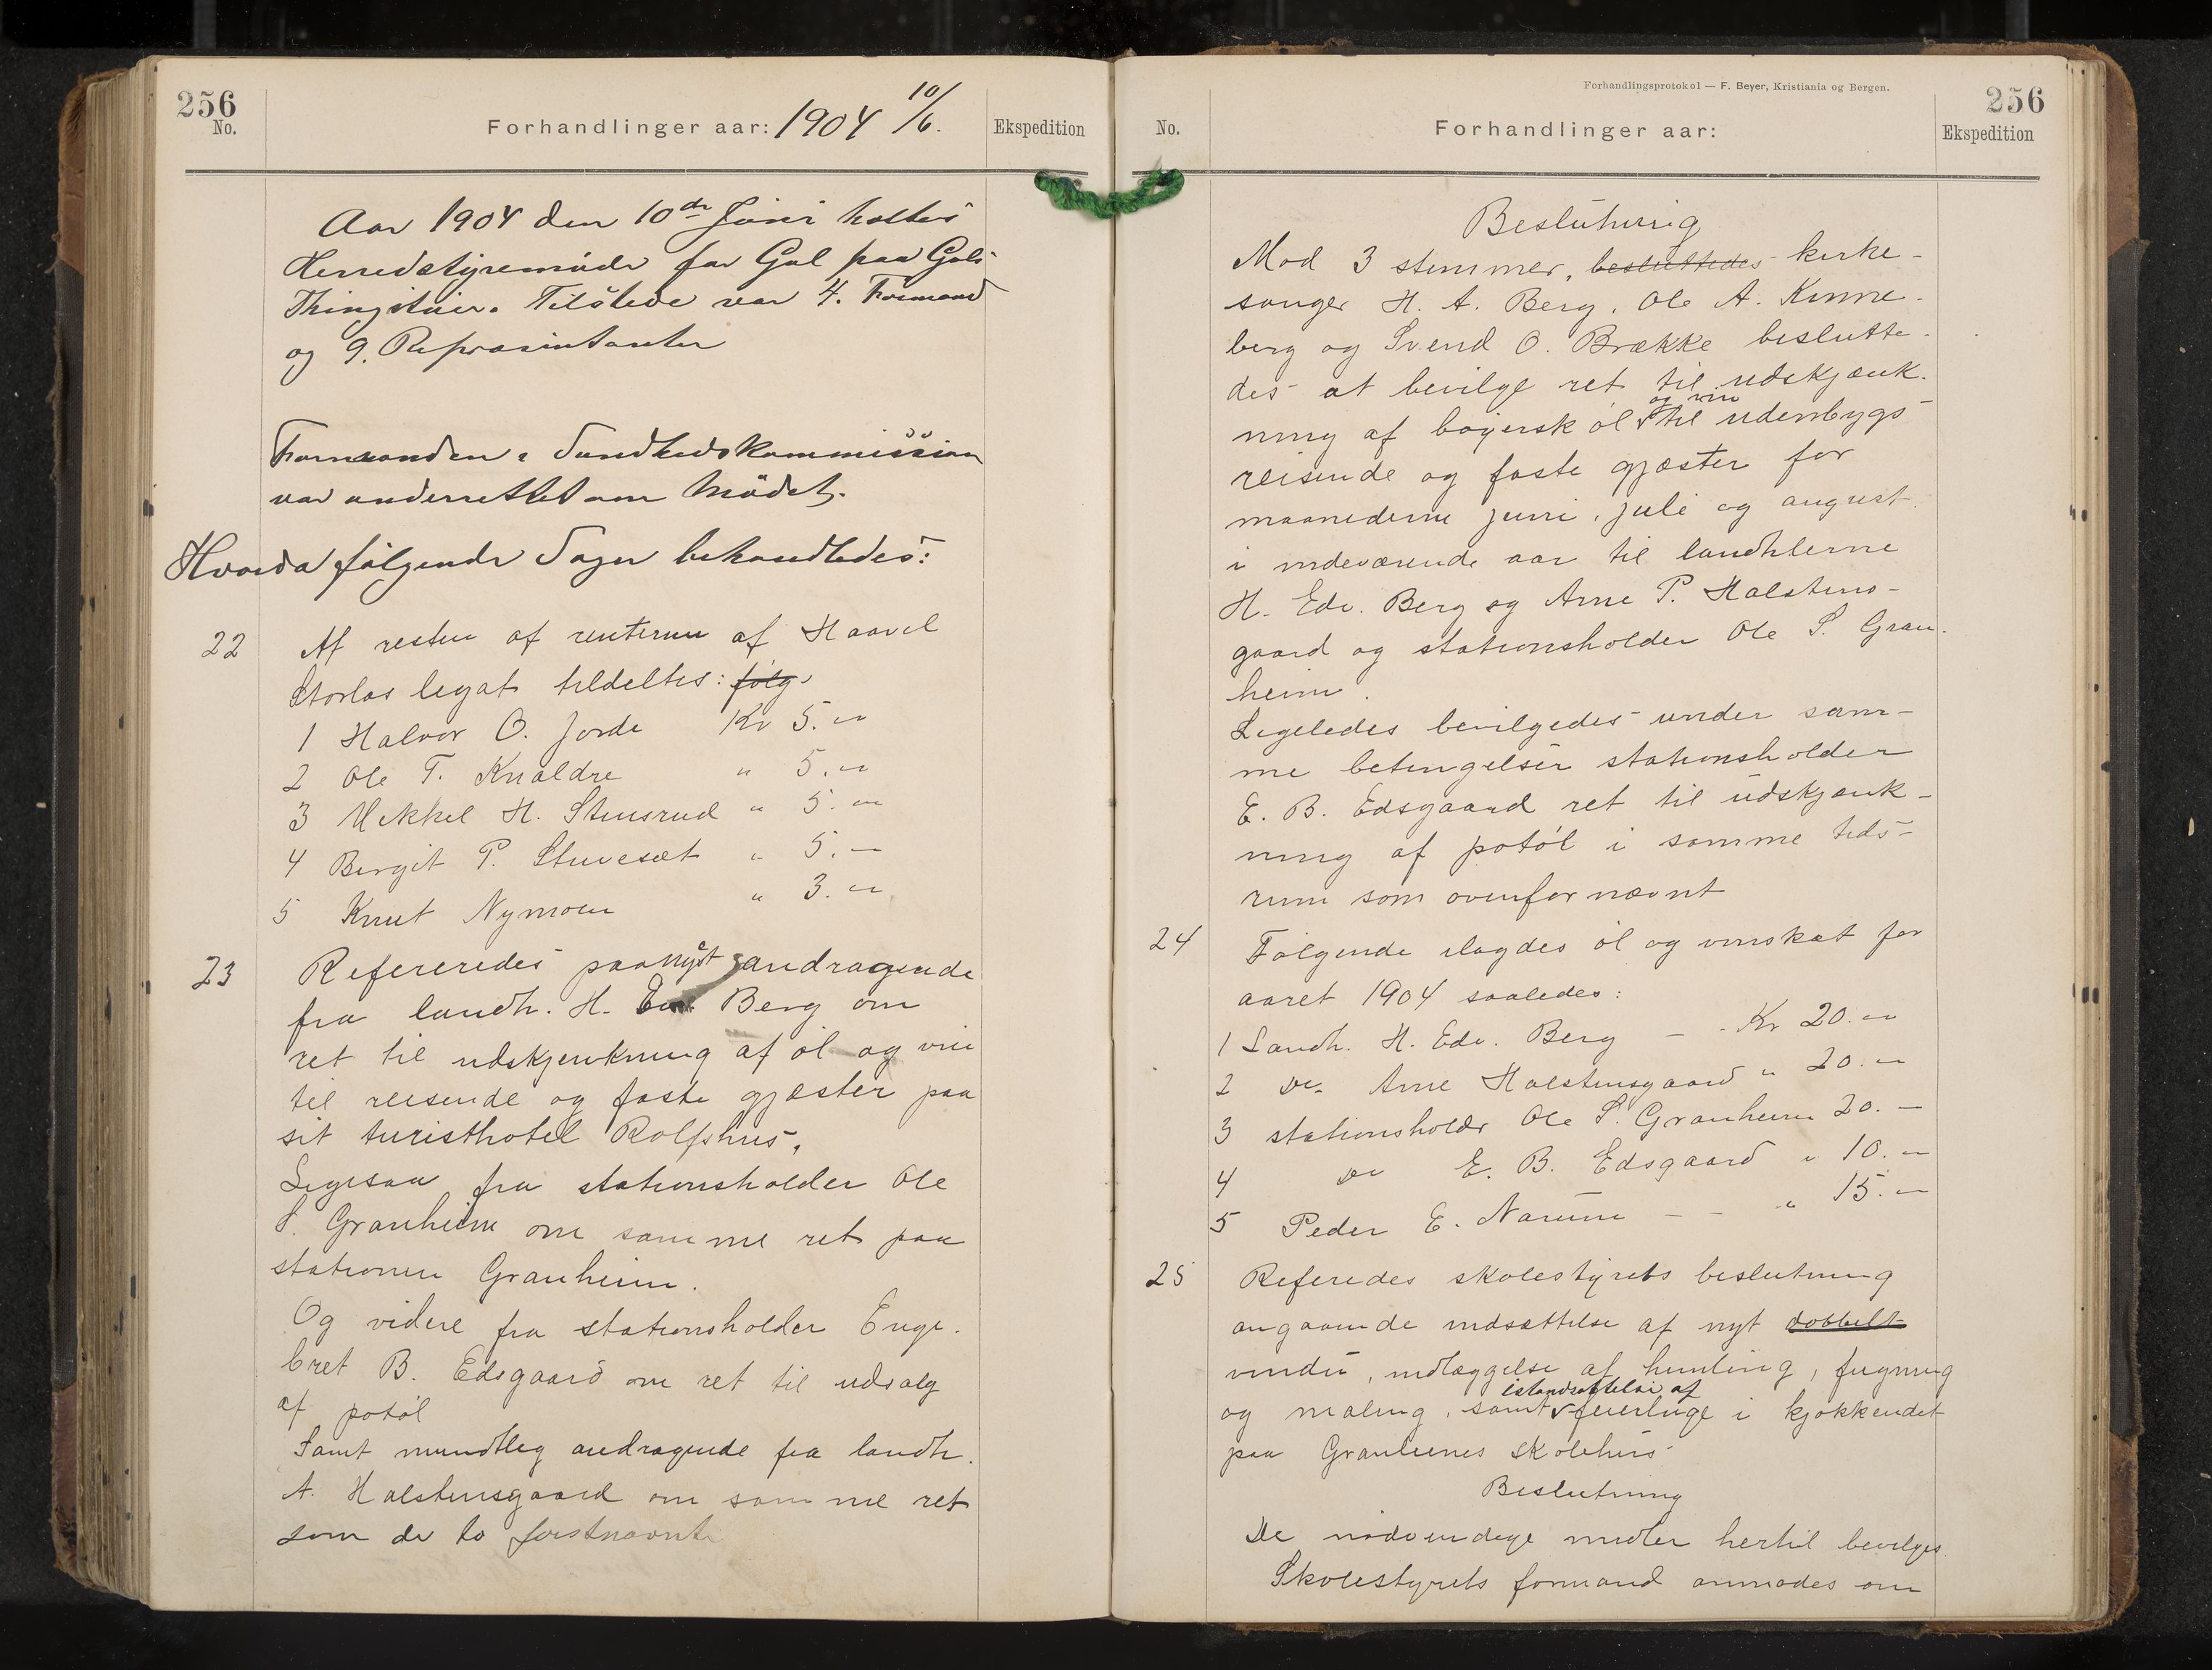 256
No.
Forhandlinger aar: 1904 10/6.
Ekspedition
Aar 1904 den 10de Juni holtes
Herredstyremöde for Gol paa Gols
Thingstuer. Tilstede var 4. Formænd
og 9. Repræsintanter
Formanden i Sundhedskommission
var underrettet om Mödet.
Hvorda fölgende Sager behandledes:
22 Af resten af renterne af Haavel
Storlos legat tildeltes: følg.
1 Halvor O. Jorde Kr 5.-
2 Ole T. Knaldre " 5.-
3 Mekkel H. Stensrud " 5.-
4 Bergit P. Stuvesæt " 5.-
5 Knut Nymoen " 3.-
23 Refereredes paanyt andragende
fra landh. H. Edv. Berg om
ret til udskjenkning af øl og vin
til reisende og faste gjæster paa
sit turisthotel Rolfshus.
Ligesaa fra stationsholder Ole
S. Granheim om samme ret paa
stationen Granheim.
Og videre fra stationsholder Enge-
bret B. Edsgaard om ret til udsalg
af potøl
Samt mundtleg andragende fra landh.
A. Halstensgaard om samme ret
som de to førstnævnte
Forhandlingsprotokol — F. Beyer, Kristiania og Bergen.
256
No.
Forhandlinger aar:
Ekspedition
Beslutning
Mod 3 stemmer, besluttedes kirke-
sanger H. A. Berg, Ole A. Kinne-
berg og Svend O. Brække beslutte-
des at bevilge ret til udskjænk-
ning af bayersk øl og vin til udenbygs
reisende og faste gjæster for
maanederne juni, juli og august
i indeværende aar til landhlerne
H. Edv. Berg og Arne P. Halstens-
gaard og stationsholder Ole S. Gran-
heim.
Ligeledes bevilgedes under sam-
me betingelser stationsholder
E. B. Edsgaard ret til udskjænk-
ning af potøl i samme tids-
rum som ovenfor nævnt
24 Følgende ilagdes øl og vinskat for
aaret 1904 saaledes:
1 Landh. H. Edv. Berg - - Kr 20.-
2 Do. Arne Halstensgaard " 20.-
3 stationsholdr Ole S. Granheim 20.-
4 Do E. B. Edsgaard " 10.-
5 Peder E. Narum - - " 15.-
25 Referedes skolestyrets beslutning
angaaende indsættelse af nyt dobbelt
vindu, indlæggelse af himling, fugning
og maling, samt istandsættelse af feierluge i kjøkkendet
paa Granlienes skolehus.
Beslutning
De nødvendige midler hertil bevilges
Skolestyrets formand anmodes om